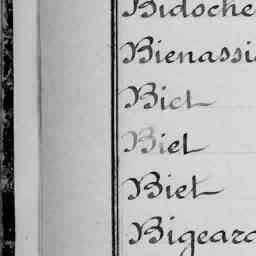 Bidoche
Bienassi
Biet
Biet
Biet
Bigeard